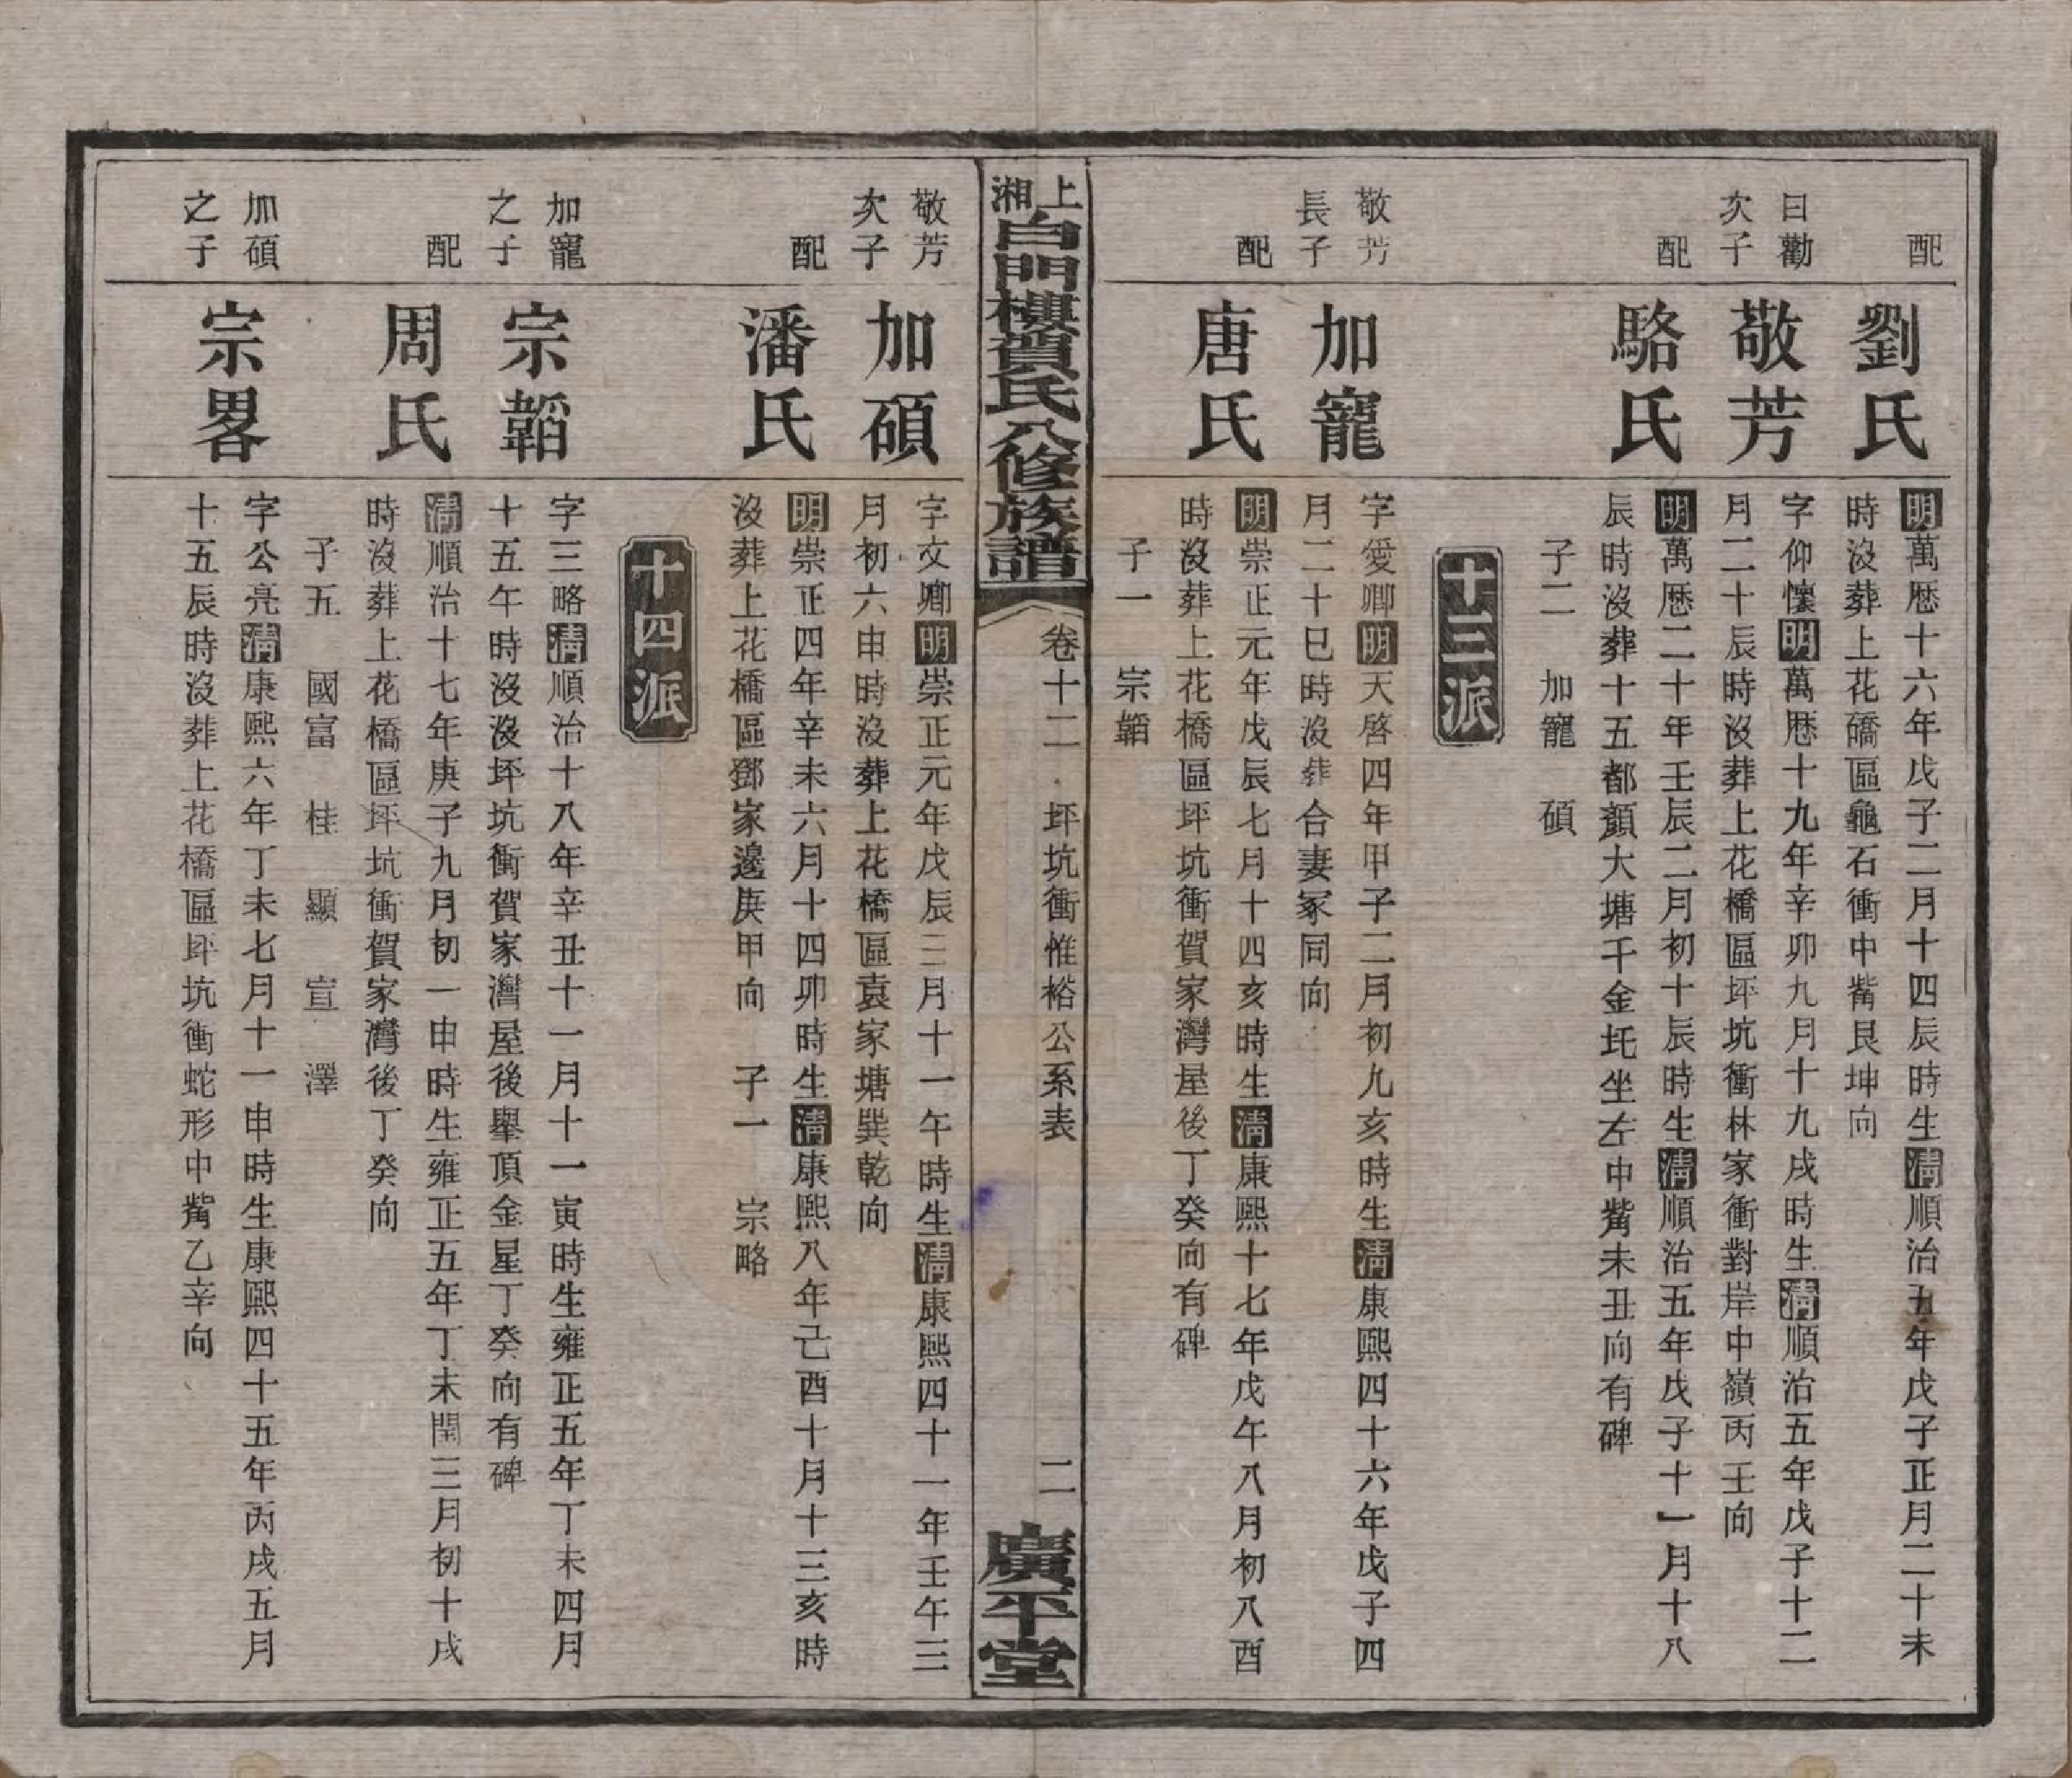 配
劉氏
明萬歷十六年戊子二月十四辰時生清順治五年戊子正月二十未
時沒葬上花礄區龜石衝中觜艮坤向
曰勸
次子
敬芳
字仰懷明萬歷十九年辛卯九月十九戌時生清順治五年戊子十二
月二十辰時沒葬上花橋區坪坑衝林家衝對岸中嶺丙壬向
配
駱氏
明萬歷二十年壬辰二月初十辰時生清順治五年戊子十一月十八
辰時沒葬十五都顏大塘千金坵坐左中觜未丑向有碑
子二 加寵 碩
十三派
敬芳
長子
加寵
字愛卿明天啓四年甲子二月初九亥時生清康熙四十六年戊子四
月二十巳時沒葬合妻冢同向
配
唐氏
明崇正元年戊辰七月十四亥時生清康熙十七年戊午八月初八酉
時沒葬上花橋區坪坑衝賀家灣屋後丁癸向有碑
子一 宗韜
上湘白門樓賀氏八修族譜
卷十二 坪坑衝惟裕公系表
二
廣平堂
敬芳
次子
加碩
字文卿明崇正元年戊辰三月十一午時生清康熙四十一年壬午三
月初六申時沒葬上花橋區袁家塘巽乾向
配
潘氏
明崇正四年辛未六月十四卯時生清康熙八年己酉十月十三亥時
沒葬上花橋區鄧家邊庚甲向 子一 宗略
十四派
加寵
之子
宗韜
字三略清順治十八年辛丑十一月十一寅時生雍正五年丁未四月
十五午時沒沒坪坑衝賀家灣屋後舉頂金星丁癸向有碑
配
周氏
清順治十七年庚子九月初一申時生雍正五年丁未閏三月初十戌
時沒葬上花橋區坪坑衝賀家灣後丁癸向
子五 國富 桂 顯 宣 澤
加碩
之子
宗畧
字公亮清康熙六年丁未七月十一申時生康熙四十五年丙戌五月
十五辰時沒葬上花橋區坪坑衝蛇形中觜乙辛向